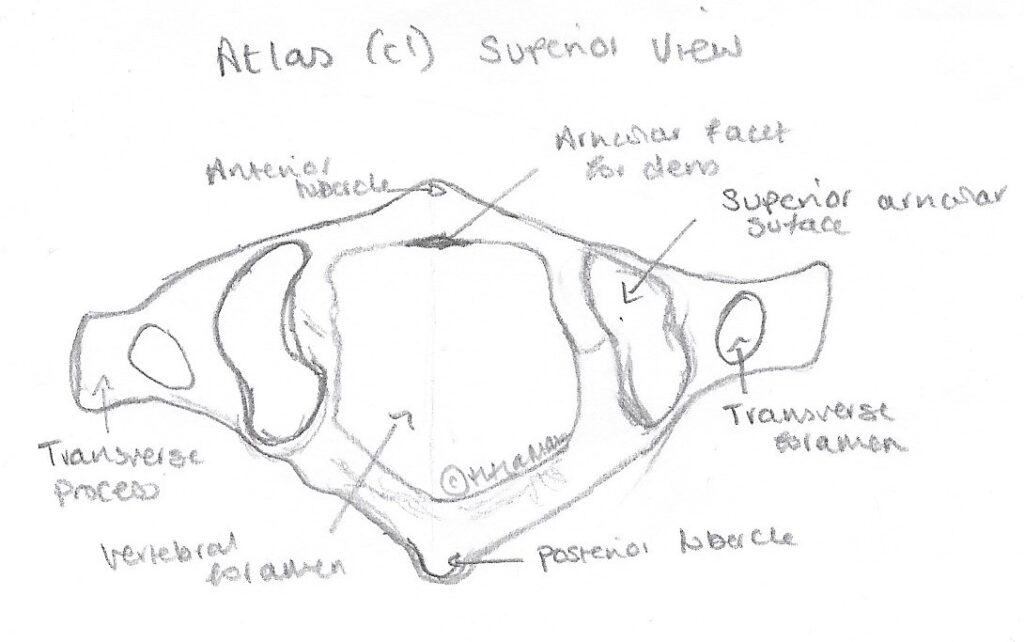 Atlas (C1) Superior View
Anterior
tubercle
Articular facet
for dens
Superior articular
suface
Transverse
process
Transverse
foramen
Vertebral
foramen
Posterior tubercle